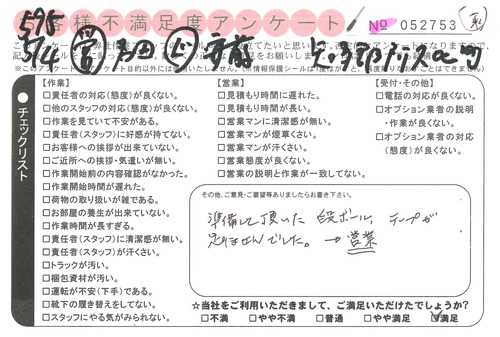 お客様不満足度アンケート
No 052753
575
5/4
チェックリスト
【作業】
□責任者の対応(態度)が良くない。
□他のスタッフの対応(態度)が良くない。
□作業を見ていて不安がある。
□責任者(スタッフ)に好感が持てない。
□お客様への挨拶が出来ていない。
□ご近所への挨拶・気遣いが無い。
□作業開始前の内容確認がなかった。
□作業開始時間が遅れた。
□荷物の取り扱いが雑である。
□お部屋の養生が出来ていない。
□作業時間が長すぎる。
□責任者(スタッフ)に清潔感が無い。
□責任者(スタッフ)が汗くさい。
□トラックが汚い。
□梱包資材が汚い。
□運転が不安(下手)である。
□靴下の履き替えをしてない。
□スタッフにやる気がみられない。
【営業】
□見積もり時間に遅れた。
□見積もり時間が長い。
□営業マンに清潔感が無い。
□営業マンが煙草くさい。
□営業マンが汗くさい。
□営業態度が良くない。
□営業の説明と作業が一致してない。
【受付・その他】
□電話の対応が良くない。
□オプション業者の説明・作業が良くない。
□オプション業者の対応(態度)が良くない。
その他、ご意見・ご要望等ありましたらお書き下さい。
準備して頂いた段ボール、テープが
足りませんでした。→営業
☆当社をご利用いただきまして、ご満足いただけたでしょうか?
□不満 □やや不満 □普通 □やや満足 ☑満足